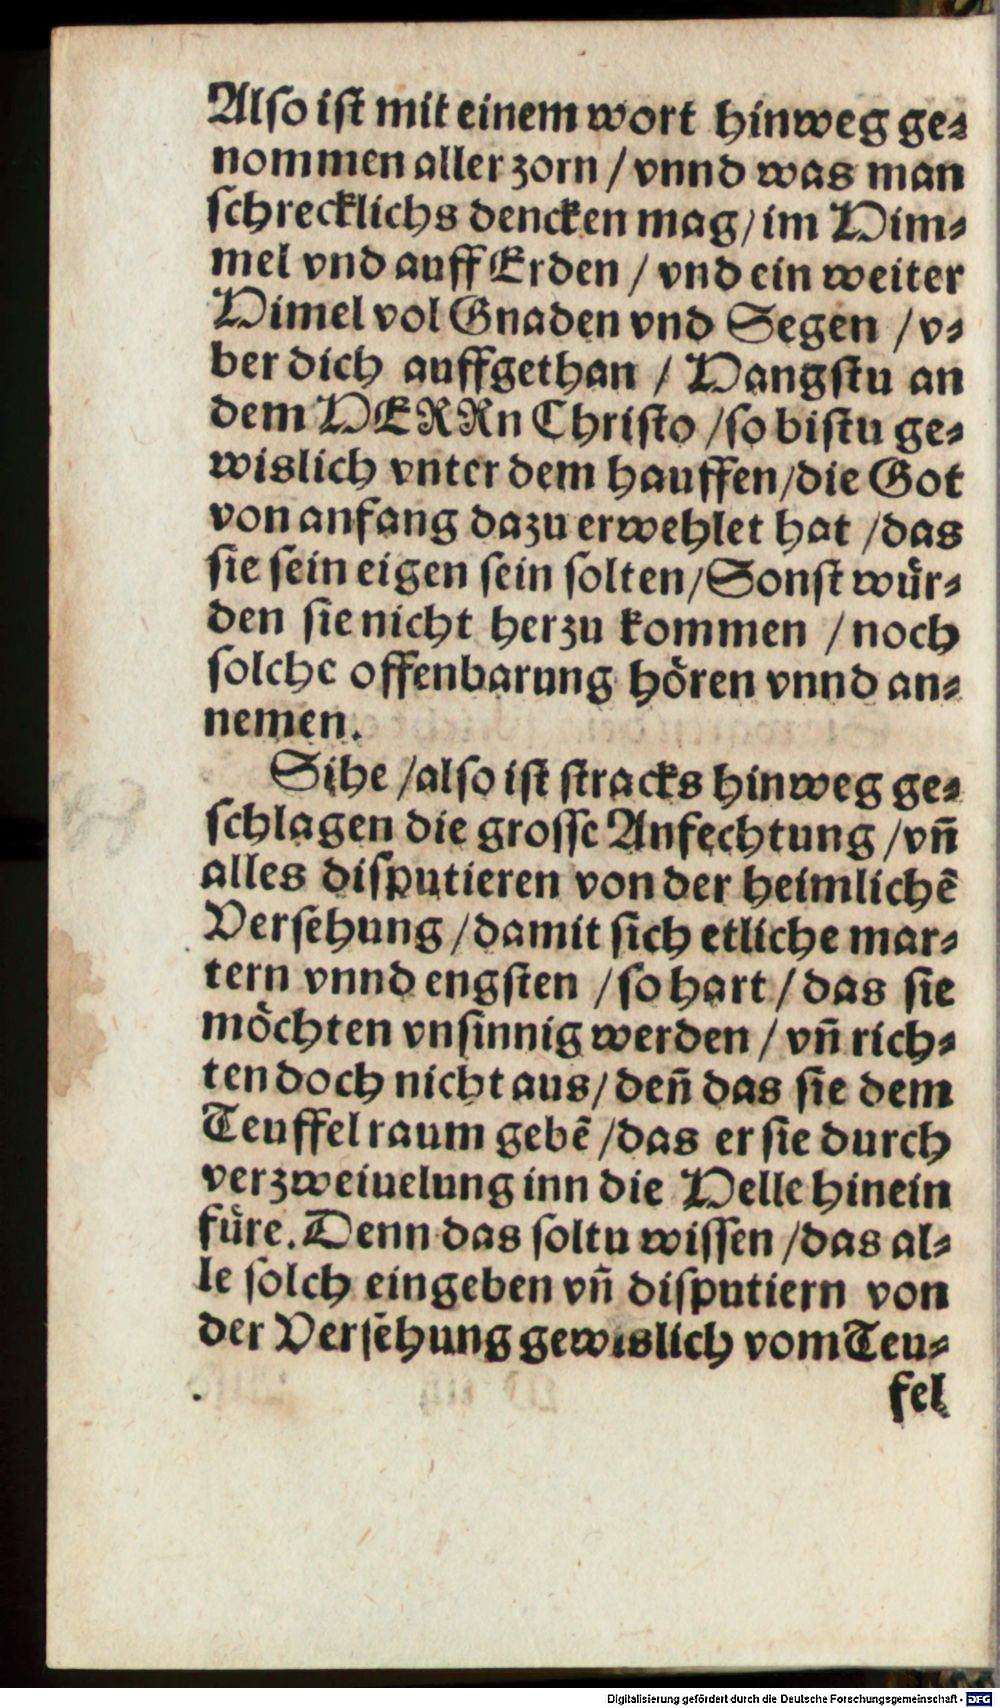 Alſo iſt mit einem wort hinweg ge⸗
nommen aller zorn / vnnd was man
ſchrecklichs dencken mag / im Him⸗
mel vnd auff Erden / vnd ein weiter
Himel vol Gnaden vnd Segen / v⸗
ber dich auffgethan / Hangſtu an
dem HERRn Chriſto / ſo biſtu ge⸗
wislich vnter dem hauffen / die Got
von anfang dazu erwehlet hat / das
ſie ſein eigen ſein ſolten / Sonſt wuͤr⸗
den ſie nicht herzu kommen / noch
ſolche offenbarung hoͤren vnnd an⸗
nemen.
Sihe / alſo iſt ſtracks hinweg ge⸗
ſchlagen die groſſe Anfechtung / vñ
alles diſputieren von der heimlichẽ
Verſehung / damit ſich etliche mar⸗
tern vnnd engſten / ſo hart / das ſie
moͤchten vnſinnig werden / vñ rich⸗
ten doch nicht aus / deñ das ſie dem
Teuffel raum gebẽ / das er ſie durch
verzweiuelung inn die Helle hinein
fuͤre. Denn das ſoltu wiſſen / das al⸗
le ſolch eingeben vñ diſputiern von
der Verſehung gewislich vom Teu⸗
fel
Digitalisierung gefördert durch die Deutsche Forschungsgemeinschaft - DFG